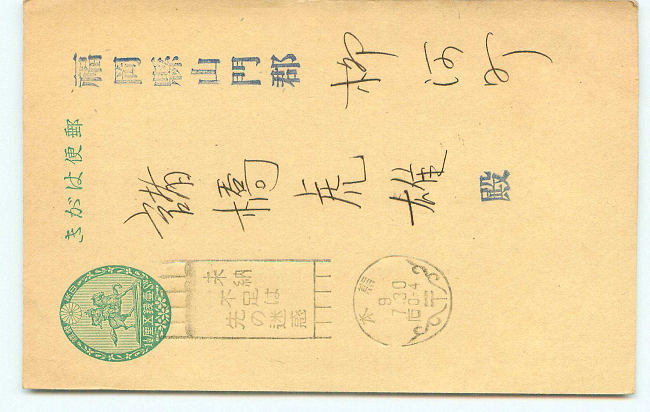 郵便はがき
福岡縣山門郡 柳河町
諸橋虎雄 殿
未納
不足は
先の迷惑
熊本
9
7.30
后0-4
壹錢五厘